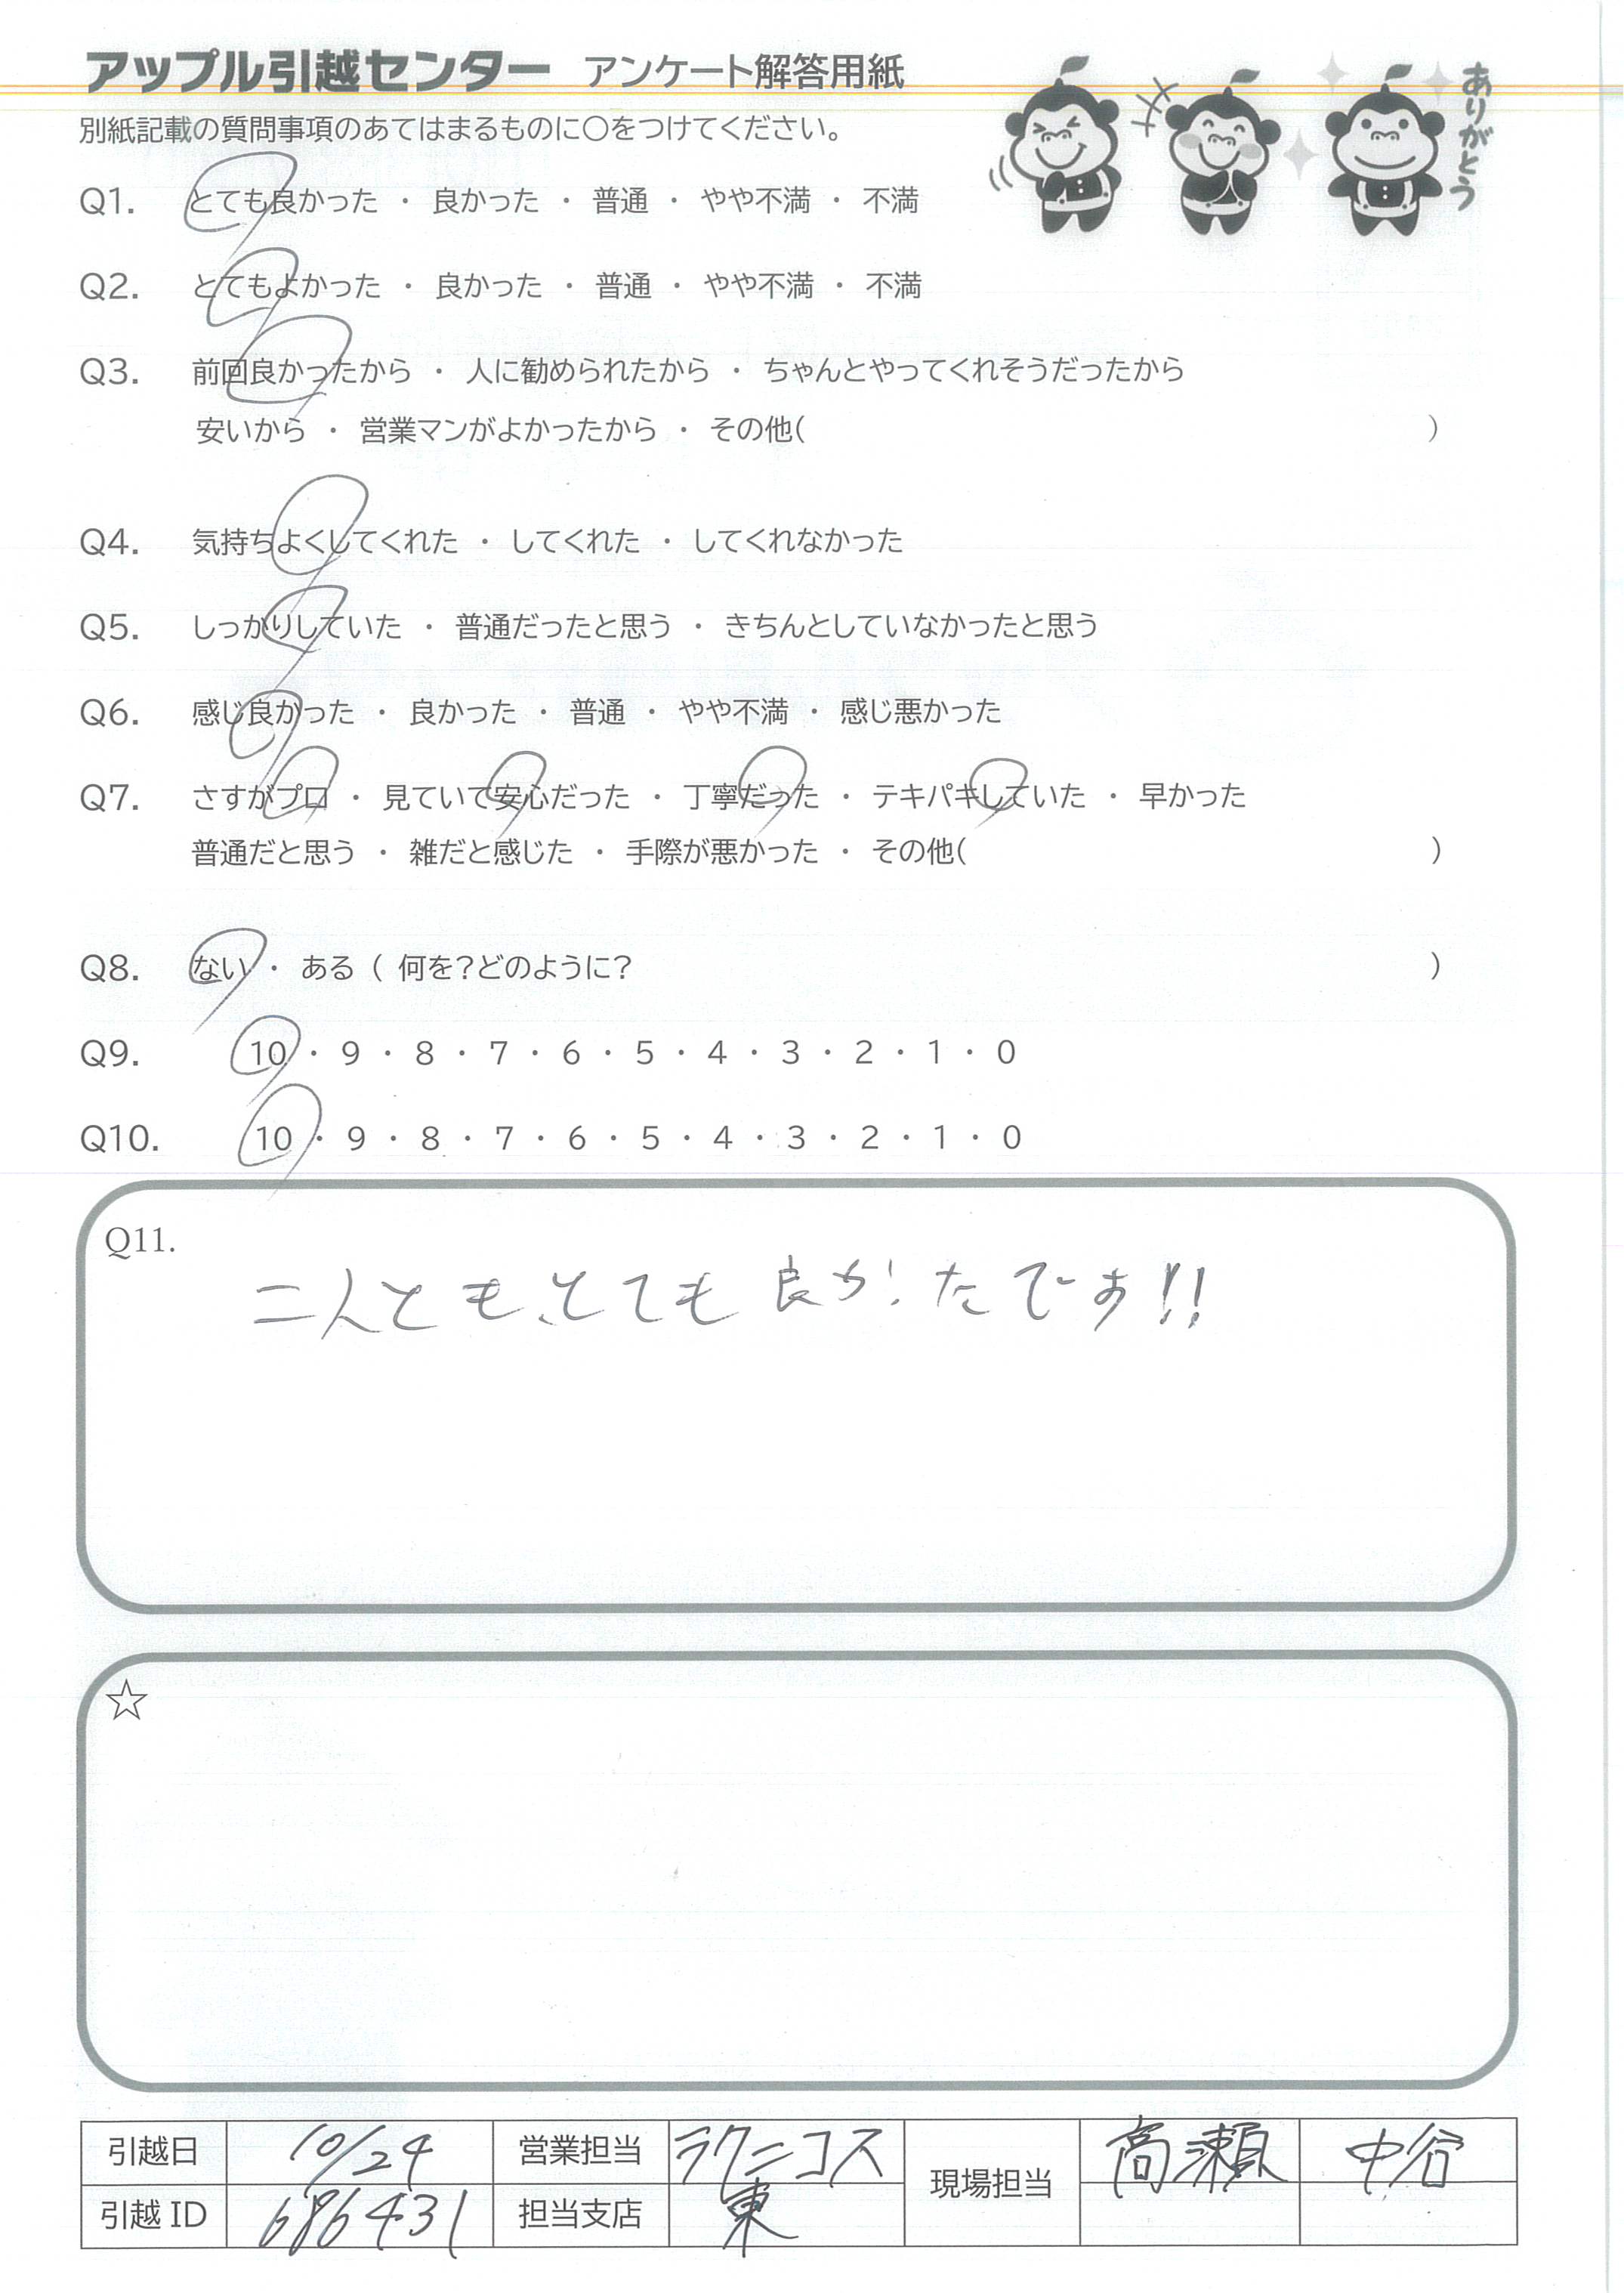 アップル引越センター アンケート解答用紙
ありがとう
別紙記載の質問事項のあてはまるものに〇をつけてください。
Q1. とても良かった ・ 良かった ・ 普通 ・ やや不満 ・ 不満
Q2. とてもよかった ・ 良かった ・ 普通 ・ やや不満 ・ 不満
Q3. 前回良かったから ・ 人に勧められたから ・ ちゃんとやってくれそうだったから
安いから ・ 営業マンがよかったから ・ その他( )
Q4. 気持ちよくしてくれた ・ してくれた ・ してくれなかった
Q5. しっかりしていた ・ 普通だったと思う ・ きちんとしていなかったと思う
Q6. 感じ良かった ・ 良かった ・ 普通 ・ やや不満 ・ 感じ悪かった
Q7. さすがプロ ・ 見ていて安心だった ・ 丁寧だった ・ テキパキしていた ・ 早かった
普通だと思う ・ 雑だと感じた ・ 手際が悪かった ・ その他( )
Q8. ない ・ ある ( 何を?どのように? )
Q9. 10 ・ 9 ・ 8 ・ 7 ・ 6 ・ 5 ・ 4 ・ 3 ・ 2 ・ 1 ・ 0
Q10. 10 ・ 9 ・ 8 ・ 7 ・ 6 ・ 5 ・ 4 ・ 3 ・ 2 ・ 1 ・ 0
Q11.
二人とも、とても良かったです!!
☆
引越日 10/24 営業担当 ラクニコス 現場担当 高瀬 中谷
引越 ID 686431 担当支店 東